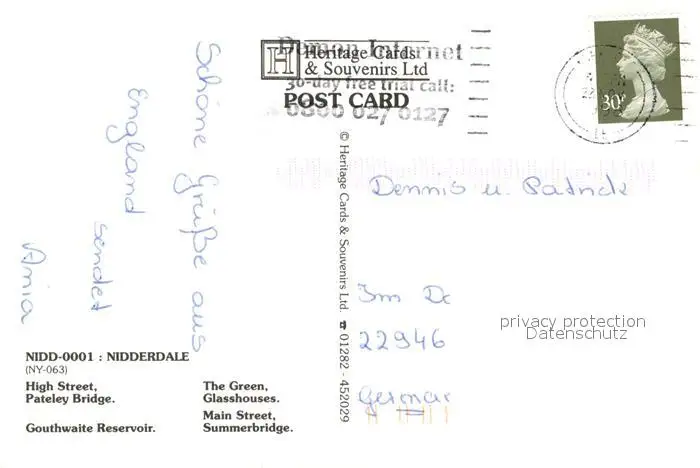 Demon Internet
H Heritage Cards
& Souvenirs Ltd
30-day free trial call:
POST CARD
0800 027 0127
30P
Schöne Grüße aus
England
sendet
Ania
© Heritage Cards & Souvenirs Ltd. ☎ 01282 - 452029
Dennis u. Patrick
Im
22946
privacy protection
Datenschutz
NIDD-0001 : NIDDERDALE
(NY-063)
High Street,
Pateley Bridge.
Gouthwaite Reservoir.
The Green,
Glasshouses.
Main Street,
Summerbridge.